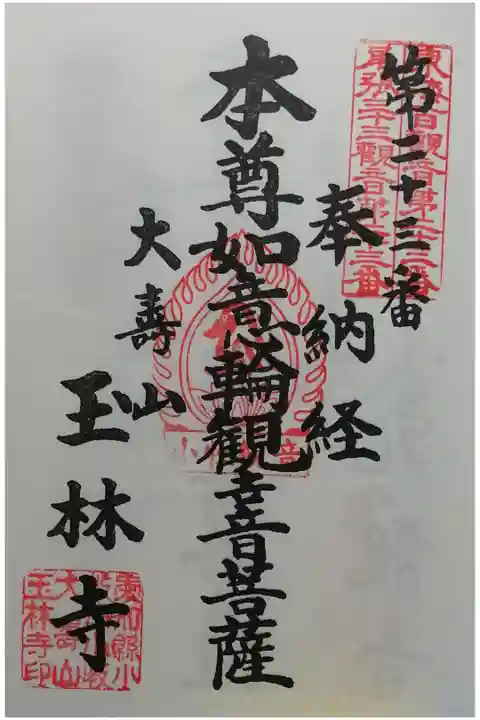 第二十三番
奉納経
本尊如意輪観音菩薩
大壽山
玉林寺
東海百観音第二十三番
尾張三十三観音第二十三番
玉林寺印